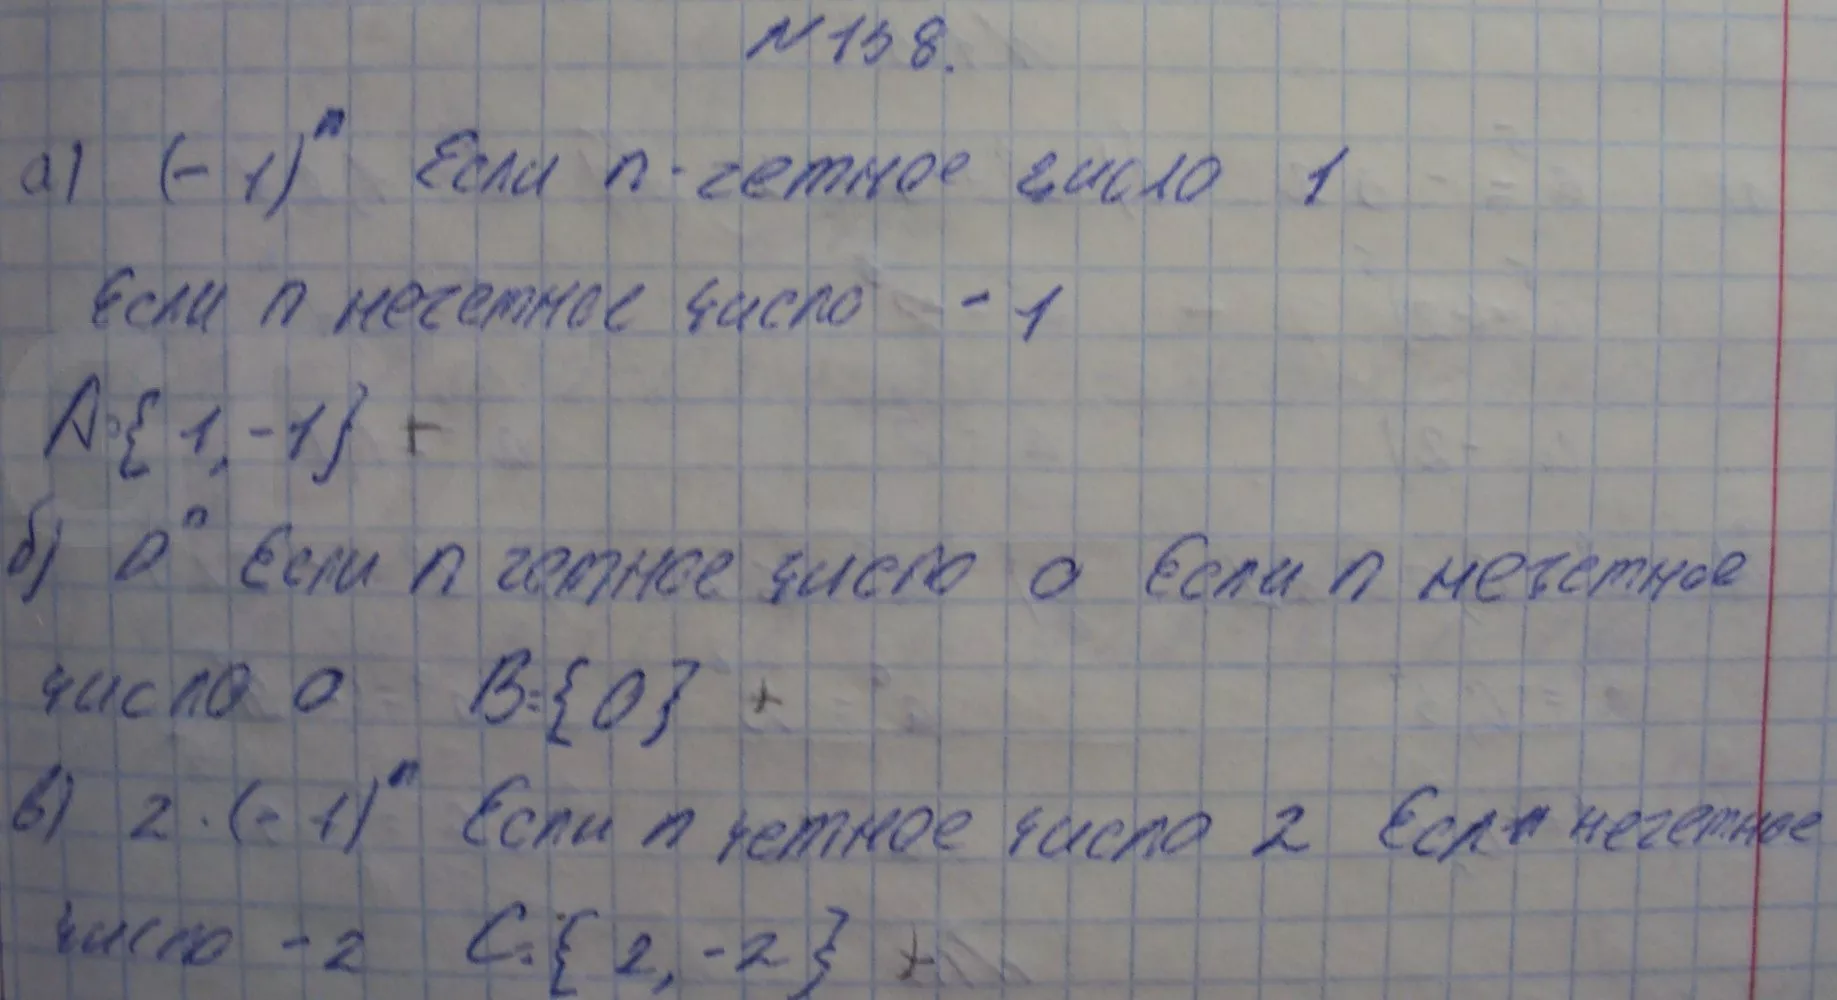 N 158.
а) (-1)ⁿ Если n-четное число 1
Если n нечетное число -1
A={1,-1} +
б) 0ⁿ Если n четное число 0 Если n нечетное
число 0 B={0} +
в) 2·(-1)ⁿ Если n четное число 2 Если n нечетное
число -2 C={2,-2} +